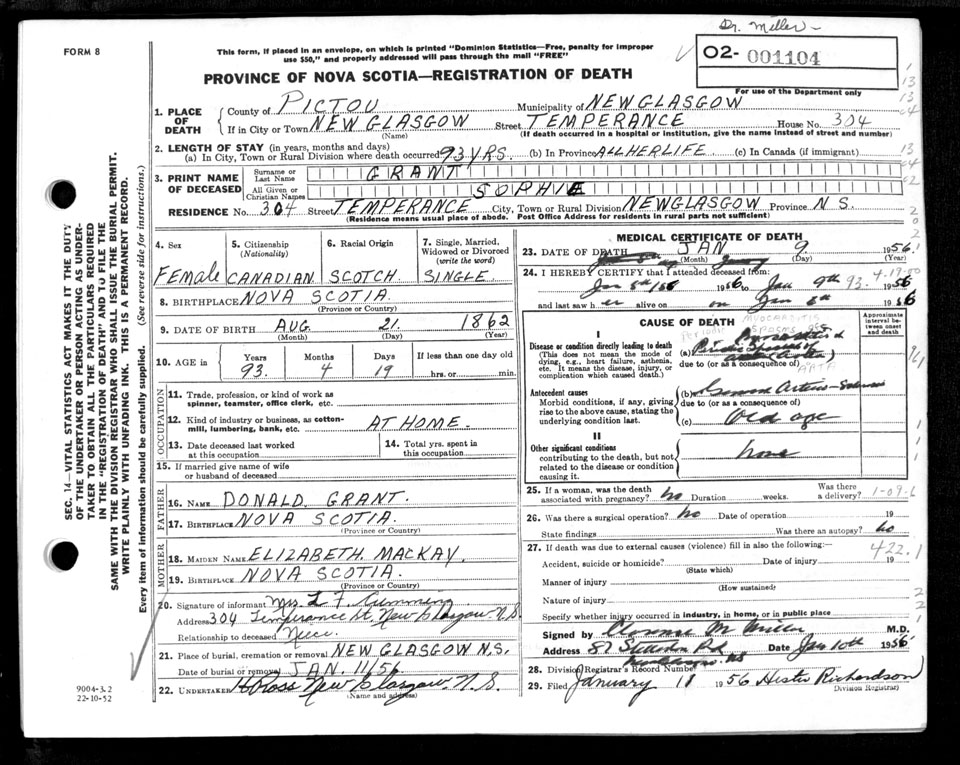 Dr. Miller
FORM 8
This form, if placed in an envelope, on which is printed "Dominion Statistics—Free, penalty for improper
use $50," and properly addressed will pass through the mail "FREE"
O2- 001104
For use of the Department only
PROVINCE OF NOVA SCOTIA—REGISTRATION OF DEATH
1. PLACE OF DEATH
County of PICTOU Municipality of NEW GLASGOW
If in City or Town NEW GLASGOW Street TEMPERANCE House No. 304
(Name) (If death occurred in a hospital or institution, give the name instead of street and number)
2. LENGTH OF STAY (in years, months and days)
(a) In City, Town or Rural Division where death occurred 93 YRS. (b) In Province ALL HER LIFE (c) In Canada (if immigrant)
3. PRINT NAME OF DECEASED
Surname or Last Name GRANT
All Given or Christian Names SOPHIE
RESIDENCE No. 304 Street TEMPERANCE City, Town or Rural Division NEW GLASGOW Province N S.
(Residence means usual place of abode. Post Office Address for residents in rural parts not sufficient)
4. Sex
Female
5. Citizenship (Nationality)
CANADIAN
6. Racial Origin
SCOTCH
7. Single, Married, Widowed or Divorced (write the word)
SINGLE
8. BIRTHPLACE NOVA SCOTIA
(Province or Country)
9. DATE OF BIRTH AUG. 21. 1862
(Month) (Day) (Year)
10. AGE in Years 93. Months 4 Days 19 If less than one day old hrs. or min.
OCCUPATION
11. Trade, profession, or kind of work as spinner, teamster, office clerk, etc.
12. Kind of industry or business, as cotton-mill, lumbering, bank, etc. AT HOME.
13. Date deceased last worked at this occupation
14. Total yrs. spent in this occupation
15. If married give name of wife or husband of deceased
FATHER
16. NAME DONALD GRANT.
17. BIRTHPLACE NOVA SCOTIA.
(Province or Country)
MOTHER
18. MAIDEN NAME ELIZABETH MACKAY.
19. BIRTHPLACE NOVA SCOTIA.
(Province or Country)
20. Signature of informant Mrs. L. F. Cumming
Address 304 Temperance St. New Glasgow N.S.
Relationship to deceased Niece
21. Place of burial, cremation or removal NEW GLASGOW N.S.
Date of burial or removal JAN. 11/56.
22. UNDERTAKER Ross New Glasgow N.S.
(Name and address)
MEDICAL CERTIFICATE OF DEATH
23. DATE OF DEATH JAN 9. 1956.
(Month) (Day)
24. I HEREBY CERTIFY that I attended deceased from:
Jan 8th 1956 to Jan 9th 1956
93. 4.19-00
and last saw her alive on Jan 8th 1956
CAUSE OF DEATH
Approximate interval between onset and death
I
Disease or condition directly leading to death
(This does not mean the mode of dying, e.g., heart failure, asthenia, etc. It means the disease, injury, or complication which caused death.)
MYOCARDITIS
SPASMS
(a)
due to (or as a consequence of)
Antecedent causes
Morbid conditions, if any, giving rise to the above cause, stating the underlying condition last.
(b) General Arterio-Sclerosis
due to (or as a consequence of)
(c) Old age
II
Other significant conditions
contributing to the death, but not related to the disease or condition causing it.
none
25. If a woman, was the death associated with pregnancy? no Duration weeks. Was there a delivery?
1-09-6
26. Was there a surgical operation? no Date of operation 19
State findings Was there an autopsy? no
27. If death was due to external causes (violence) fill in also the following:—
422.1
Accident, suicide or homicide? Date of injury 19
(State which)
Manner of injury
(How sustained)
Nature of injury
Specify whether injury occurred in industry, in home, or in public place
Signed by M Miller M.D.
Address 82 Stellarton Rd Date Jan 10th 1956.
28. Division Registrar's Record Number
29. Filed January 11 1956 Hester Richardson
(Division Registrar)
SEC. 14—VITAL STATISTICS ACT MAKES IT THE DUTY
OF THE UNDERTAKER OR PERSON ACTING AS UNDER-
TAKER TO OBTAIN ALL THE PARTICULARS REQUIRED
IN THE "REGISTRATION OF DEATH" AND TO FILE THE
SAME WITH THE DIVISION REGISTRAR WHO SHALL ISSUE THE BURIAL PERMIT.
WRITE PLAINLY WITH UNFADING INK. THIS IS A PERMANENT RECORD.
Every item of information should be carefully supplied. (See reverse side for instructions.)
9004-3.2
22-10-52